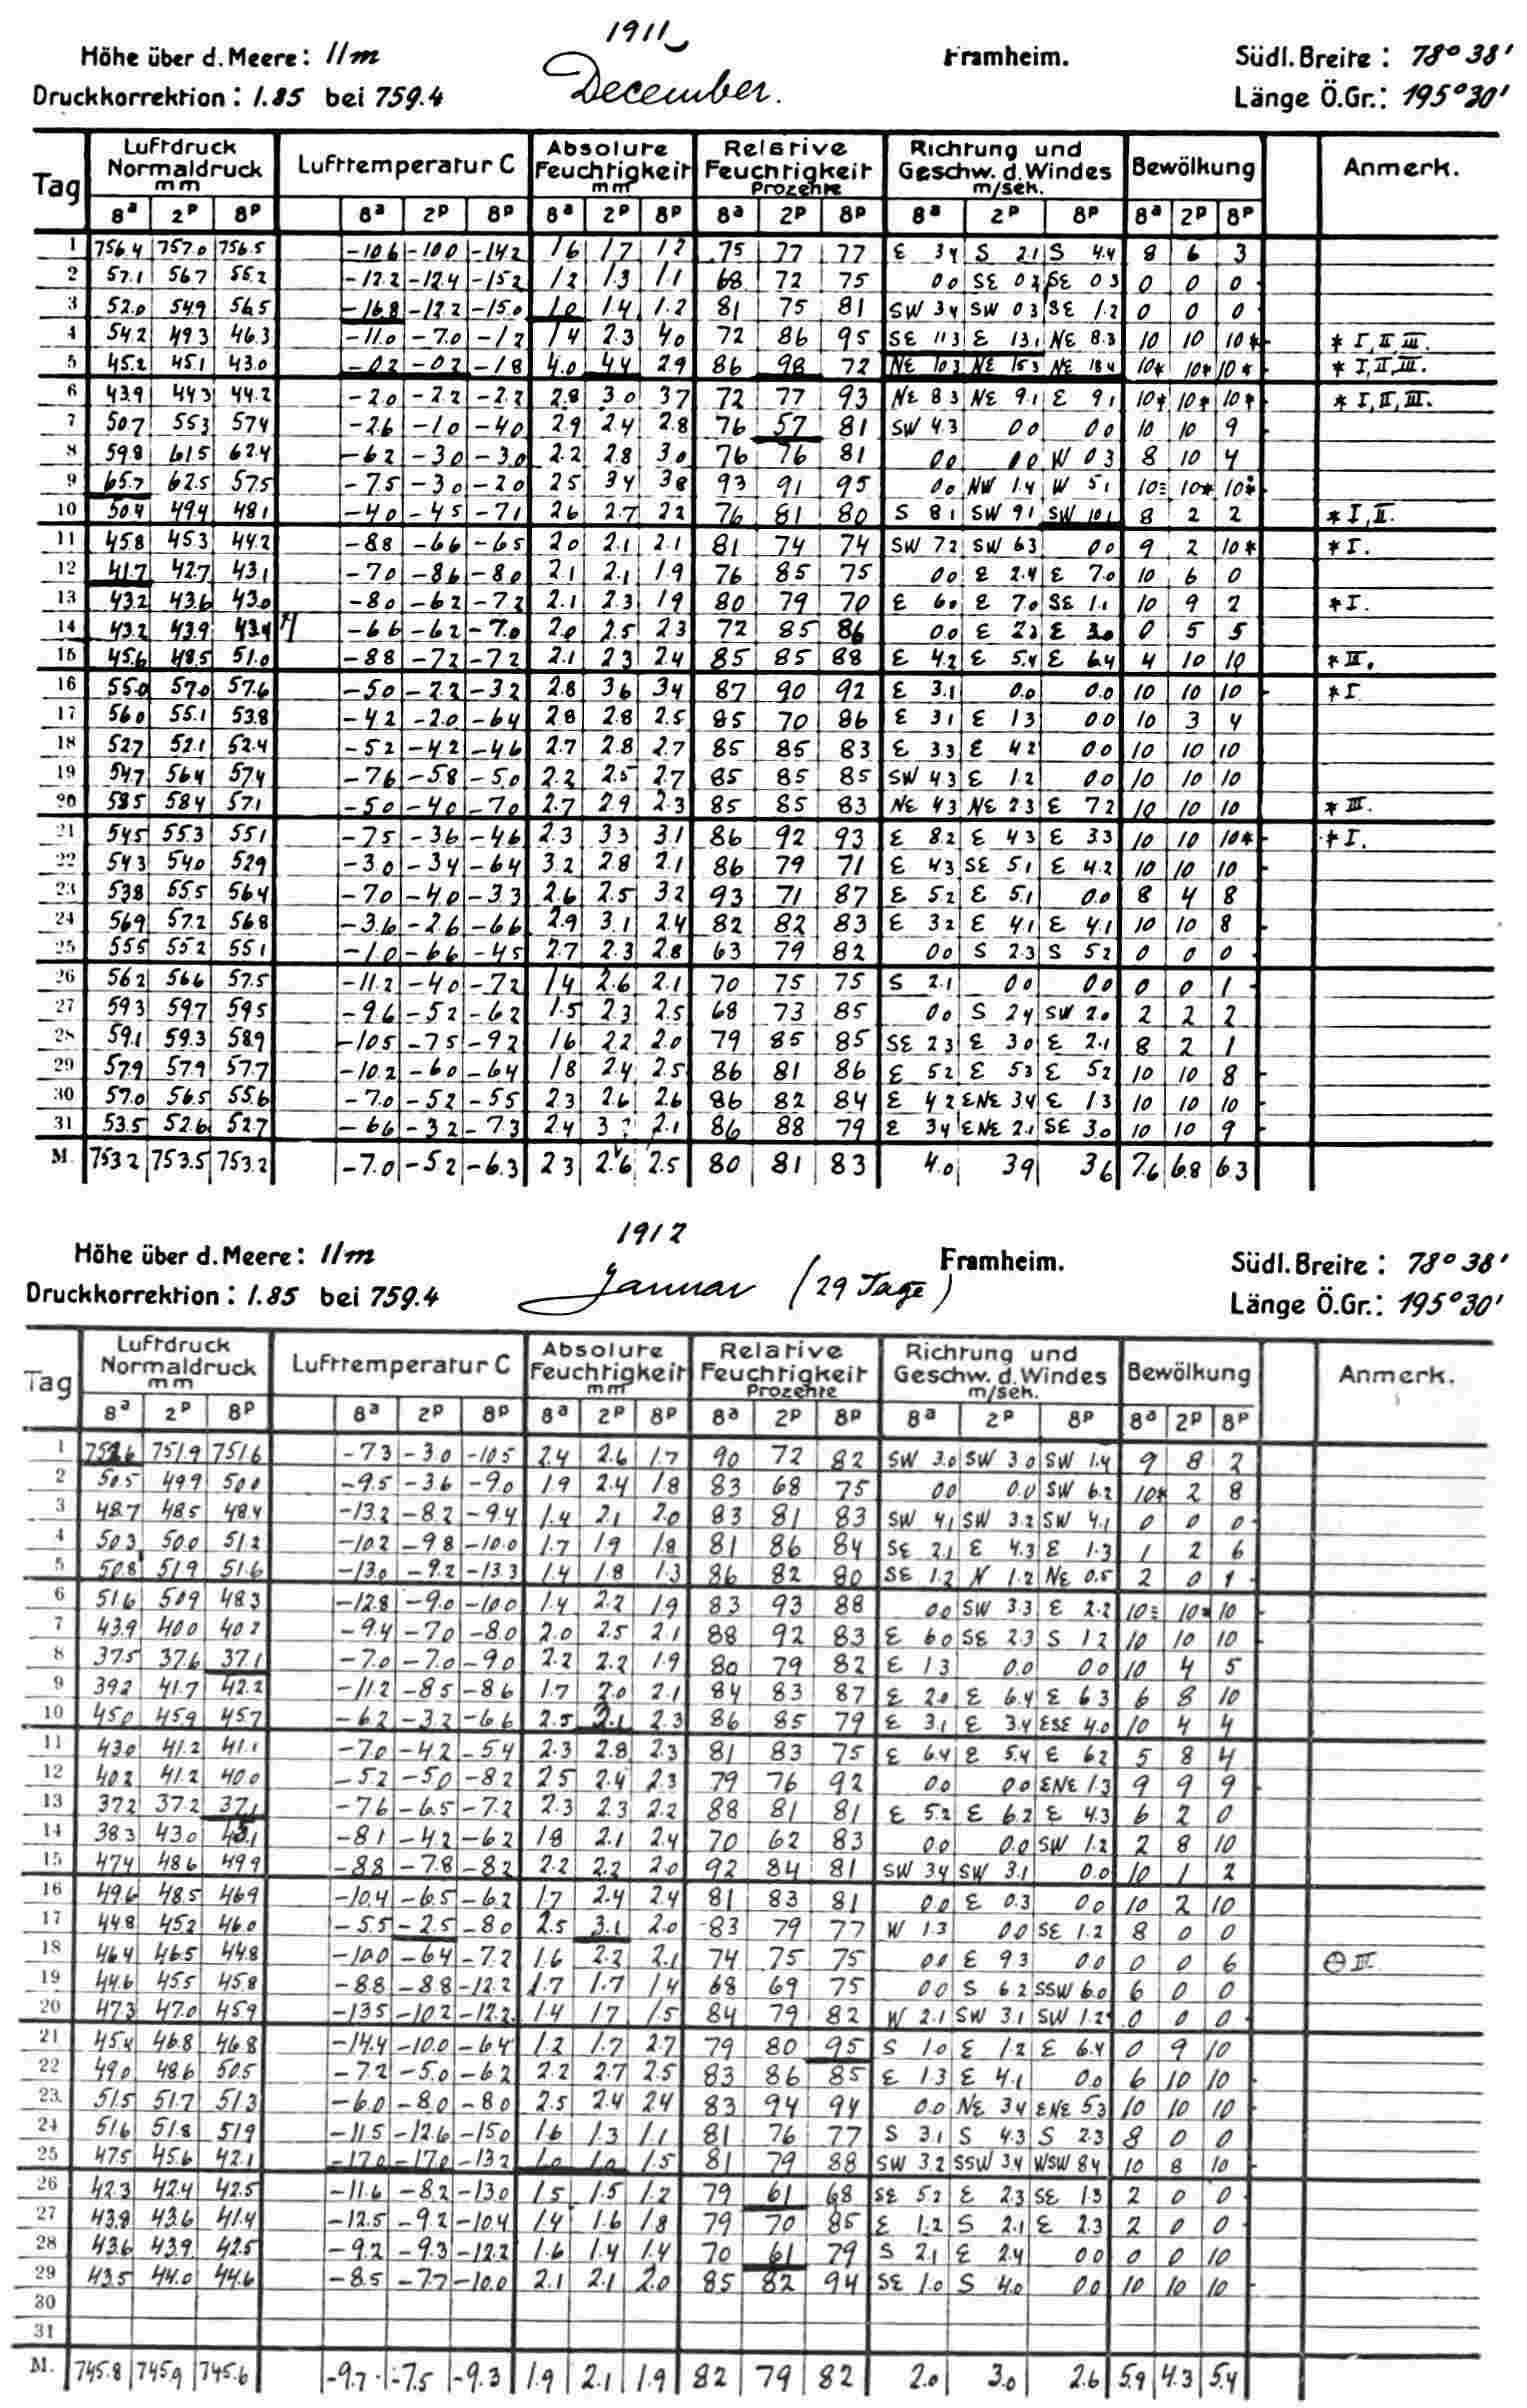 1911
Höhe über d. Meere: 11m December. Framheim. Südl. Breite: 78° 38'
Druckkorrektion: 1.85 bei 759.4 Länge Ö.Gr.: 195° 30'
Tag Luftdruck Normaldruck mm Lufttemperatur C Absolute Feuchtigkeit mm Relative Feuchtigkeit Prozente Richtung und Geschw. d. Windes m/sek. Bewölkung Anmerk.
8a 2p 8p 8a 2p 8p 8a 2p 8p 8a 2p 8p 8a 2p 8p 8a 2p 8p
1 756.4 757.0 756.5 -10.6 -10.0 -14.2 1.6 1.7 1.2 75 77 77 E 3.4 S 2.1 S 4.4 8 6 3
2 57.1 56.7 55.2 -12.2 -12.4 -15.2 1.2 1.3 1.1 68 72 75 0.0 SE 0.3 SE 0.3 0 0 0
3 52.0 54.9 56.5 -16.8 -12.2 -15.0 1.0 1.4 1.2 81 75 81 SW 3.4 SW 0.3 SE 1.2 0 0 0
4 54.2 49.3 46.3 -11.0 -7.0 -1.2 1.4 2.3 4.0 72 86 95 SE 11.3 E 13.1 NE 8.3 10 10 10* * I, II, III.
5 45.2 45.1 43.0 -0.2 -0.2 -1.8 4.0 4.4 2.9 86 98 72 NE 10.3 NE 15.3 NE 18.4 10* 10* 10* * I, II, III.
6 43.9 44.3 44.2 -2.0 -2.2 -2.2 2.8 3.0 3.7 72 77 93 NE 8.3 NE 9.1 E 9.1 10* 10* 10* * I, II, III.
7 50.7 55.3 57.4 -2.6 -1.0 -4.0 2.9 2.4 2.8 76 57 81 SW 4.3 0.0 0.0 10 10 9
8 59.8 61.5 62.4 -6.2 -3.0 -3.0 2.2 2.8 3.0 76 76 81 0.0 0.0 W 0.3 8 10 4
9 65.7 62.5 57.5 -7.5 -3.0 -2.0 2.5 3.4 3.8 93 91 95 0.0 NW 1.4 W 5.1 10≡ 10* 10*
10 50.4 49.4 48.1 -4.0 -4.5 -7.1 2.6 2.7 2.2 76 81 80 S 8.1 SW 9.1 SW 10.1 8 2 2 * I, II.
11 45.8 45.3 44.2 -8.8 -6.6 -6.5 2.0 2.1 2.1 81 74 74 SW 7.2 SW 6.3 0.0 9 2 10* * I.
12 41.7 42.7 43.1 -7.0 -8.6 -8.0 2.1 2.1 1.9 76 85 75 0.0 E 2.4 E 7.0 10 6 0
13 43.2 43.6 43.0 -8.0 -6.2 -7.2 2.1 2.3 1.9 80 79 70 E 6.0 E 7.0 SE 1.1 10 9 2 * I.
14 43.2 43.9 43.4 -6.6 -6.2 -7.0 2.0 2.5 2.3 72 85 86 0.0 E 2.3 E 3.0 0 5 5
15 45.6 48.5 51.0 -8.8 -7.2 -7.2 2.1 2.3 2.4 85 85 88 E 4.2 E 5.4 E 6.4 4 10 10 * III.
16 55.0 57.0 57.6 -5.0 -2.2 -3.2 2.8 3.6 3.4 87 90 92 E 3.1 0.0 0.0 10 10 10 * I.
17 56.0 55.1 53.8 -4.2 -2.0 -6.4 2.8 2.8 2.5 85 70 86 E 3.1 E 1.3 0.0 10 3 4
18 52.7 52.1 52.4 -5.2 -4.2 -4.6 2.7 2.8 2.7 85 85 83 E 3.3 E 4.2 0.0 10 10 10
19 54.7 56.4 57.4 -7.6 -5.8 -5.0 2.2 2.5 2.7 85 85 85 SW 4.3 E 1.2 0.0 10 10 10
20 58.5 58.4 57.1 -5.0 -4.0 -7.0 2.7 2.9 2.3 85 85 83 NE 4.3 NE 2.3 E 7.2 10 10 10 * III.
21 54.5 55.3 55.1 -7.5 -3.6 -4.6 2.3 3.3 3.1 86 92 93 E 8.2 E 4.3 E 3.3 10 10 10* * I.
22 54.3 54.0 52.9 -3.0 -3.4 -6.4 3.2 2.8 2.1 86 79 71 E 4.3 SE 5.1 E 4.2 10 10 10
23 53.8 55.5 56.4 -7.0 -4.0 -3.3 2.6 2.5 3.2 93 71 87 E 5.2 E 5.1 0.0 8 4 8
24 56.9 57.2 56.8 -3.6 -2.6 -6.6 2.9 3.1 2.4 82 82 83 E 3.2 E 4.1 E 4.1 10 10 8
25 55.5 55.2 55.1 -1.0 -6.6 -4.5 2.7 2.3 2.8 63 79 82 0.0 S 2.3 S 5.2 0 0 0
26 56.2 56.6 57.5 -11.2 -4.0 -7.2 1.4 2.6 2.1 70 75 75 S 2.1 0.0 0.0 0 0 1
27 59.3 59.7 59.5 -9.6 -5.2 -6.2 1.5 2.3 2.5 68 73 85 0.0 S 2.4 SW 2.0 2 2 2
28 59.1 59.3 58.9 -10.5 -7.5 -9.2 1.6 2.2 2.0 79 85 85 SE 2.3 E 3.0 E 2.1 8 2 1
29 57.9 57.9 57.7 -10.2 -6.0 -6.4 1.8 2.4 2.5 86 81 86 E 5.2 E 5.3 E 5.2 10 10 8
30 57.0 56.5 55.6 -7.0 -5.2 -5.5 2.3 2.6 2.6 86 82 84 E 4.2 ENE 3.4 E 1.3 10 10 10
31 53.5 52.6 52.7 -6.6 -3.2 -7.3 2.4 2.1 86 88 79 E 3.4 ENE 2.1 SE 3.0 10 10 9
M. 753.2 753.5 753.2 -7.0 -5.2 -6.3 2.3 2.6 2.5 80 81 83 4.0 3.9 3.6 7.6 6.8 6.3
1912
Höhe über d. Meere: 11m Januar (29 Tage) Framheim. Südl. Breite: 78° 38'
Druckkorrektion: 1.85 bei 759.4 Länge Ö.Gr.: 195° 30'
Tag Luftdruck Normaldruck mm Lufttemperatur C Absolute Feuchtigkeit mm Relative Feuchtigkeit Prozente Richtung und Geschw. d. Windes m/sek. Bewölkung Anmerk.
8a 2p 8p 8a 2p 8p 8a 2p 8p 8a 2p 8p 8a 2p 8p 8a 2p 8p
1 752.6 751.9 751.6 -7.3 -3.0 -10.5 2.4 2.6 1.7 90 72 82 SW 3.0 SW 3.0 SW 1.4 9 8 2
2 50.5 49.9 50.0 -9.5 -3.6 -9.0 1.9 2.4 1.8 83 68 75 0.0 0.0 SW 6.2 10* 2 8
3 48.7 48.5 48.4 -13.2 -8.2 -9.4 1.4 2.1 2.0 83 81 83 SW 4.1 SW 3.2 SW 4.1 0 0 0
4 50.3 50.0 51.2 -10.2 -9.8 -10.0 1.7 1.9 1.8 81 86 84 SE 2.1 E 4.3 E 1.3 1 2 6
5 50.8 51.9 51.6 -13.0 -9.2 -13.3 1.4 1.8 1.3 86 82 80 SE 1.2 N 1.2 NE 0.5 2 0 1
6 51.6 50.9 48.3 -12.8 -9.0 -10.0 1.4 2.2 1.9 83 93 88 0.0 SW 3.3 E 2.2 10≡ 10* 10
7 43.9 40.0 40.2 -9.4 -7.0 -8.0 2.0 2.5 2.1 88 92 83 E 6.0 SE 2.3 S 1.2 10 10 10
8 37.5 37.6 37.1 -7.0 -7.0 -9.0 2.2 2.2 1.9 80 79 82 E 1.3 0.0 0.0 10 4 5
9 39.2 41.7 42.2 -11.2 -8.5 -8.6 1.7 2.0 2.1 84 83 87 E 2.0 E 6.4 E 6.3 6 8 10
10 45.0 45.9 45.7 -6.2 -3.2 -6.6 2.5 3.1 2.3 86 85 79 E 3.1 E 3.4 ESE 4.0 10 4 4
11 43.0 41.2 41.1 -7.0 -4.2 -5.4 2.3 2.8 2.3 81 83 75 E 6.4 E 5.4 E 6.2 5 8 4
12 40.2 41.2 40.0 -5.2 -5.0 -8.2 2.5 2.4 2.3 79 76 92 0.0 0.0 ENE 1.3 9 9 9
13 37.2 37.2 37.1 -7.6 -6.5 -7.2 2.3 2.3 2.2 88 81 81 E 5.2 E 6.2 E 4.3 6 2 0
14 38.3 43.0 -8.1 -4.2 -6.2 1.8 2.1 2.4 70 62 83 0.0 0.0 SW 1.2 2 8 10
15 47.4 48.6 49.9 -8.8 -7.8 -8.2 2.2 2.2 2.0 92 84 81 SW 3.4 SW 3.1 0.0 10 1 2
16 49.6 48.5 46.9 -10.4 -6.5 -6.2 1.7 2.4 2.4 81 83 81 0.0 E 0.3 0.0 10 2 10
17 44.8 45.2 46.0 -5.5 -2.5 -8.0 2.5 3.1 2.0 83 79 77 W 1.3 0.0 SE 1.2 8 0 0
18 46.4 46.5 44.8 -10.0 -6.4 -7.2 1.6 2.2 2.1 74 75 75 0.0 E 9.3 0.0 0 0 6 ⊕ III.
19 44.6 45.5 45.8 -8.8 -8.8 -12.2 1.7 1.7 1.4 68 69 75 0.0 S 6.2 SSW 6.0 6 0 0
20 47.3 47.0 45.9 -13.5 -10.2 -12.2 1.4 1.7 1.5 84 79 82 W 2.1 SW 3.1 SW 1.2 0 0 0
21 45.4 46.8 46.8 -14.4 -10.0 -6.4 1.2 1.7 2.7 79 80 95 S 1.0 E 1.2 E 6.4 0 9 10
22 49.0 48.6 50.5 -7.2 -5.0 -6.2 2.2 2.7 2.5 83 86 85 E 1.3 E 4.1 0.0 6 10 10
23 51.5 51.7 51.3 -6.0 -8.0 -8.0 2.5 2.4 2.4 83 94 94 0.0 NE 3.4 ENE 5.3 10 10 10
24 51.6 51.8 51.9 -11.5 -12.6 -15.0 1.6 1.3 1.1 81 76 77 S 3.1 S 4.3 S 2.3 8 0 0
25 47.5 45.6 42.1 -17.0 -17.0 -13.2 1.0 1.0 1.5 81 79 88 SW 3.2 SSW 3.4 WSW 8.4 10 8 10
26 42.3 42.4 42.5 -11.6 -8.2 -13.0 1.5 1.5 1.2 79 61 68 SE 5.2 E 2.3 SE 1.3 2 0 0
27 43.8 43.6 41.4 -12.5 -9.2 -10.4 1.4 1.6 1.8 79 70 85 E 1.2 S 2.1 E 2.3 2 0 0
28 43.6 43.9 42.5 -9.2 -9.3 -12.2 1.6 1.4 1.4 70 61 79 S 2.1 E 2.4 0.0 0 0 10
29 43.5 44.0 44.6 -8.5 -7.7 -10.0 2.1 2.1 2.0 85 82 94 SE 1.0 S 4.0 0.0 10 10 10
30
31
M. 745.8 745.9 745.6 -9.7 -7.5 -9.3 1.9 2.1 1.9 82 79 82 2.0 3.0 2.6 5.9 4.3 5.4